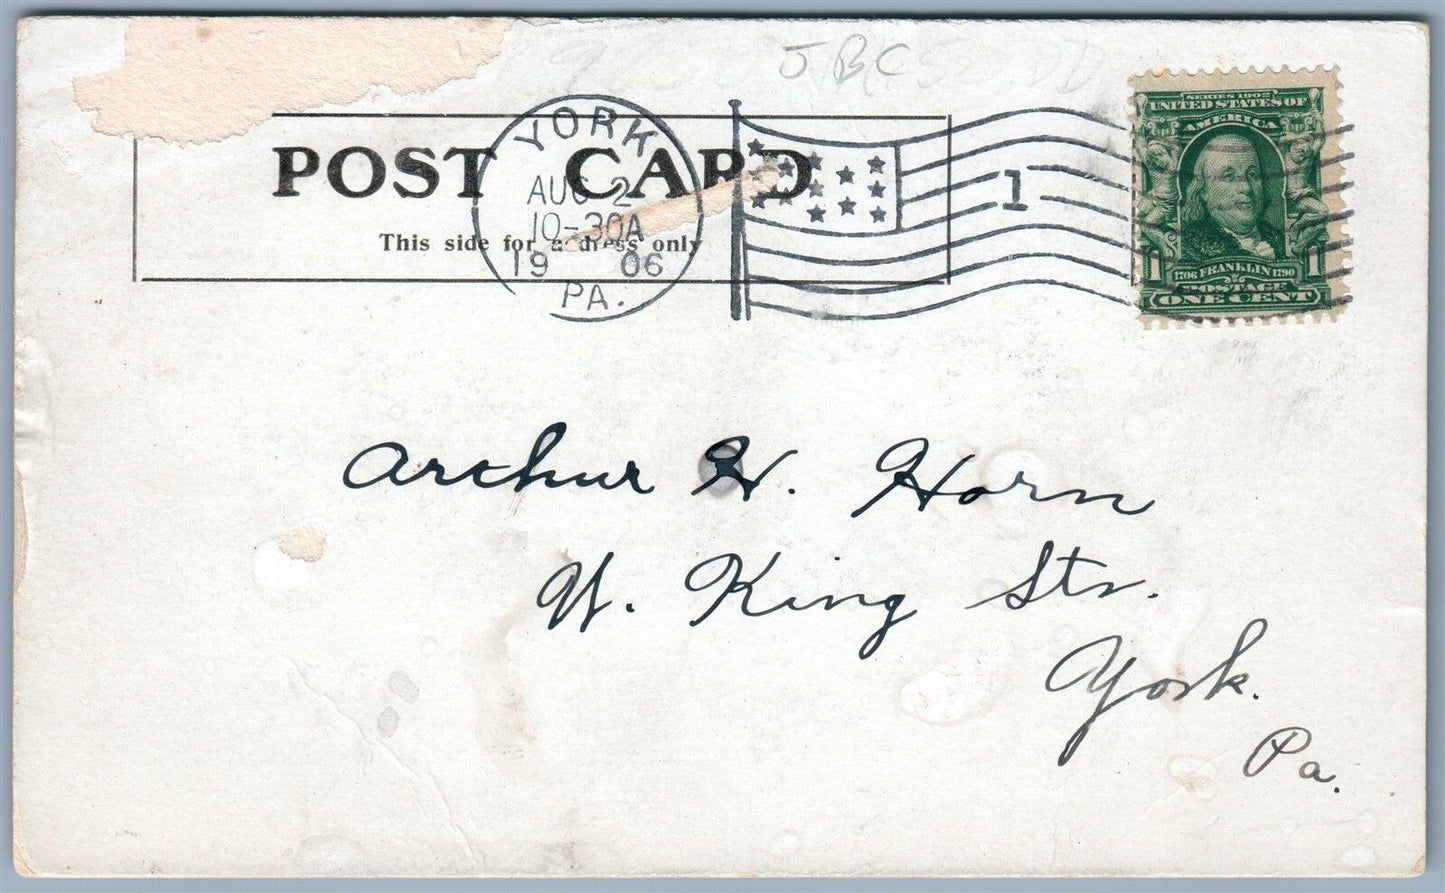 JBC
POST CARD
This side for address only
YORK
AUG 2
10-30A
19 06
PA.
1
SERIES 1902
UNITED STATES OF
AMERICA
1 1
1706 FRANKLIN 1790
POSTAGE
ONE CENT
Arthur H. Horn
W. King Str.
York.
Pa.